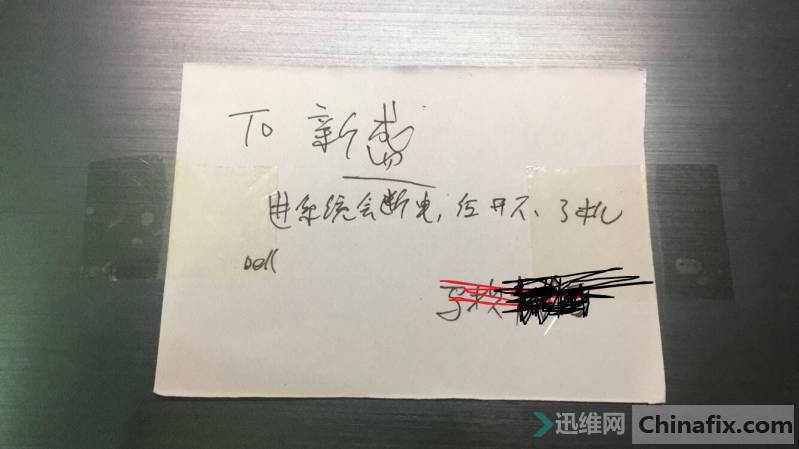 To 新
进系统会断电,经开不了机
Dell
迅维网 Chinafix.com